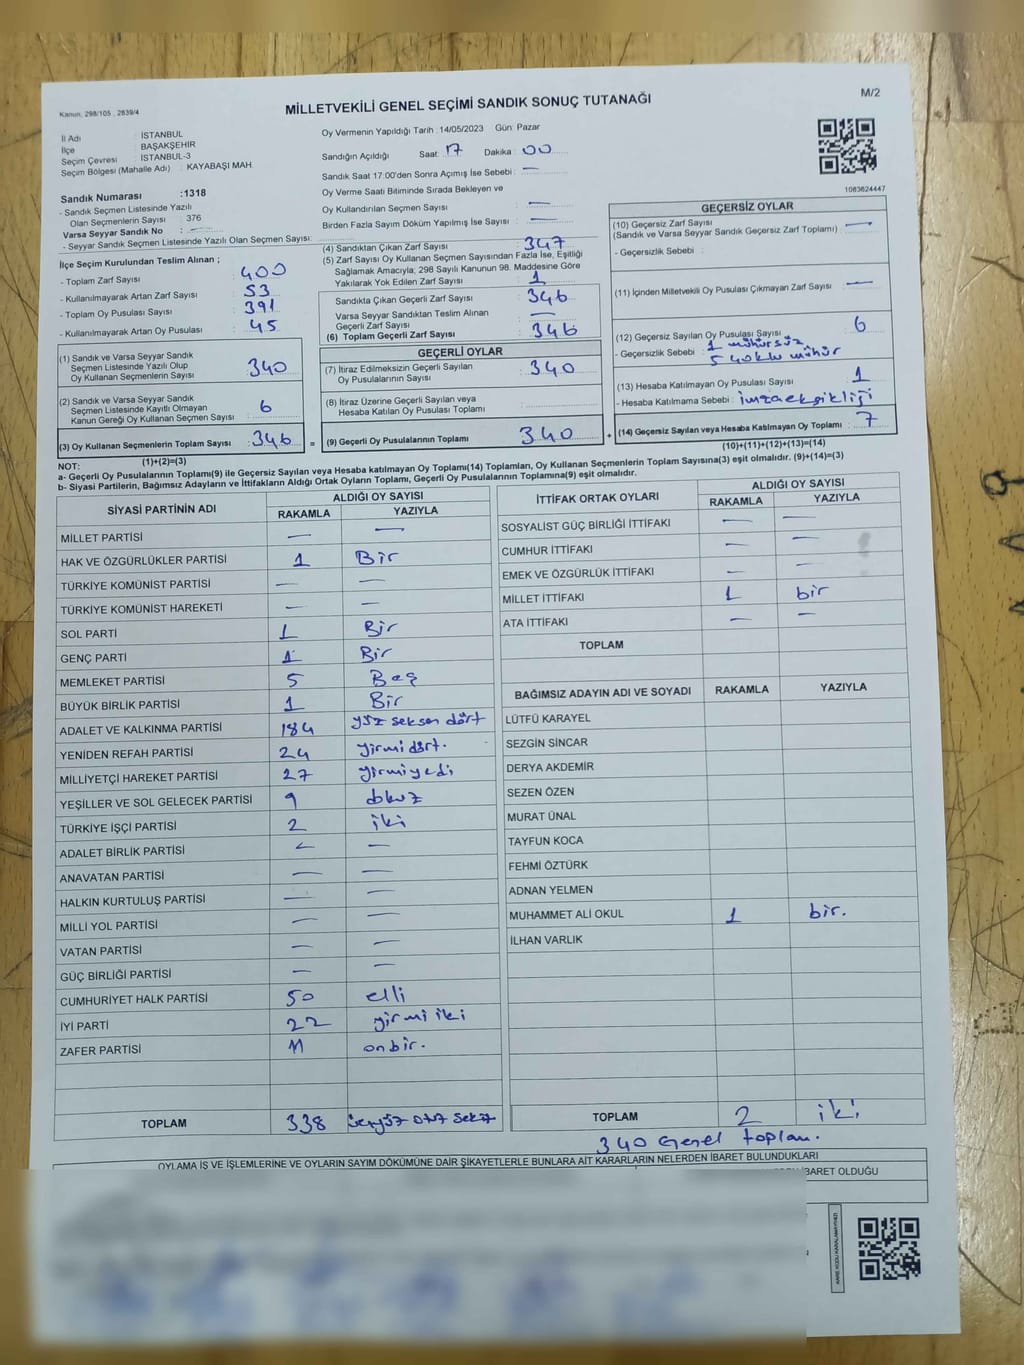 Kanun, 298/105 , 2839/4
MİLLETVEKİLİ GENEL SEÇİMİ SANDIK SONUÇ TUTANAĞI
M/2
İl Adı : İSTANBUL
İlçe : BAŞAKŞEHİR
Seçim Çevresi : İSTANBUL-3
Seçim Bölgesi (Mahalle Adı) : KAYABAŞI MAH.
Sandık Numarası :1318
- Sandık Seçmen Listesinde Yazılı
Olan Seçmenlerin Sayısı : 376
Varsa Seyyar Sandık No : —
- Seyyar Sandık Seçmen Listesinde Yazılı Olan Seçmen Sayısı:
İlçe Seçim Kurulundan Teslim Alınan ;
- Toplam Zarf Sayısı : 400
- Kullanılmayarak Artan Zarf Sayısı : 53
- Toplam Oy Pusulası Sayısı : 391
- Kullanılmayarak Artan Oy Pusulası : 45
(1) Sandık ve Varsa Seyyar Sandık
Seçmen Listesinde Yazılı Olup
Oy Kullanan Seçmenlerin Sayısı : 340
(2) Sandık ve Varsa Seyyar Sandık
Seçmen Listesinde Kayıtlı Olmayan
Kanun Gereği Oy Kullanan Seçmen Sayısı : 6
(3) Oy Kullanan Seçmenlerin Toplam Sayısı : 346 =
(1)+(2)=(3)
Oy Vermenin Yapıldığı Tarih : 14/05/2023 Gün: Pazar
Sandığın Açıldığı Saat: 17 Dakika : 00
Sandık Saat 17:00'den Sonra Açımış İse Sebebi : —
Oy Verme Saati Bitiminde Sırada Bekleyen ve
Oy Kullandırılan Seçmen Sayısı : —
Birden Fazla Sayım Döküm Yapılmış İse Sayısı : —
(4) Sandıktan Çıkan Zarf Sayısı : 347
(5) Zarf Sayısı Oy Kullanan Seçmen Sayısından Fazla İse, Eşitliği
Sağlamak Amacıyla; 298 Sayılı Kanunun 98. Maddesine Göre
Yakılarak Yok Edilen Zarf Sayısı : 1
Sandıkta Çıkan Geçerli Zarf Sayısı : 346
Varsa Seyyar Sandıktan Teslim Alınan
Geçerli Zarf Sayısı : —
(6) Toplam Geçerli Zarf Sayısı : 346
GEÇERLİ OYLAR
(7) İtiraz Edilmeksizin Geçerli Sayılan
Oy Pusulalarının Sayısı : 340
(8) İtiraz Üzerine Geçerli Sayılan veya
Hesaba Katılan Oy Pusulası Toplamı :
(9) Geçerli Oy Pusulalarının Toplamı 340 +
1083624447
GEÇERSİZ OYLAR
(10) Geçersiz Zarf Sayısı : —
(Sandık ve Varsa Seyyar Sandık Geçersiz Zarf Toplamı)
- Geçersizlik Sebebi :
(11) İçinden Milletvekili Oy Pusulası Çıkmayan Zarf Sayısı : —
(12) Geçersiz Sayılan Oy Pusulası Sayısı : 6
- Geçersizlik Sebebi : 1 mühürsüz
5 40klu mühür
(13) Hesaba Katılmayan Oy Pusulası Sayısı : 1
- Hesaba Katılmama Sebebi : imza eksikliği
(14) Geçersiz Sayılan veya Hesaba Katılmayan Oy Toplamı : 7
(10)+(11)+(12)+(13)=(14)
NOT:
a- Geçerli Oy Pusulalarının Toplamı(9) ile Geçersiz Sayılan veya Hesaba katılmayan Oy Toplamı(14) Toplamları, Oy Kullanan Seçmenlerin Toplam Sayısına(3) eşit olmalıdır. (9)+(14)=(3)
b- Siyasi Partilerin, Bağımsız Adayların ve İttifakların Aldığı Ortak Oyların Toplamı, Geçerli Oy Pusulalarının Toplamına(9) eşit olmalıdır.
SİYASİ PARTİNİN ADI
ALDIĞI OY SAYISI
RAKAMLA YAZIYLA
MİLLET PARTİSİ — —
HAK VE ÖZGÜRLÜKLER PARTİSİ 1 Bir
TÜRKİYE KOMÜNİST PARTİSİ — —
TÜRKİYE KOMÜNİST HAREKETİ — —
SOL PARTİ 1 Bir
GENÇ PARTİ 1 Bir
MEMLEKET PARTİSİ 5 Beş
BÜYÜK BİRLİK PARTİSİ 1 Bir
ADALET VE KALKINMA PARTİSİ 184 yüz seksen dört
YENİDEN REFAH PARTİSİ 24 yirmi dört.
MİLLİYETÇİ HAREKET PARTİSİ 27 yirmiyedi
YEŞİLLER VE SOL GELECEK PARTİSİ 9 dokuz
TÜRKİYE İŞÇİ PARTİSİ 2 iki
ADALET BİRLİK PARTİSİ — —
ANAVATAN PARTİSİ — —
HALKIN KURTULUŞ PARTİSİ — —
MİLLİ YOL PARTİSİ — —
VATAN PARTİSİ — —
GÜÇ BİRLİĞİ PARTİSİ — —
CUMHURİYET HALK PARTİSİ 50 elli
İYİ PARTİ 22 yirmi iki
ZAFER PARTİSİ 11 onbir.
TOPLAM 338 üçyüz otuz sekiz
İTTİFAK ORTAK OYLARI
ALDIĞI OY SAYISI
RAKAMLA YAZIYLA
SOSYALİST GÜÇ BİRLİĞİ İTTİFAKI — —
CUMHUR İTTİFAKI — —
EMEK VE ÖZGÜRLÜK İTTİFAKI — —
MİLLET İTTİFAKI 1 bir
ATA İTTİFAKI — —
TOPLAM
BAĞIMSIZ ADAYIN ADI VE SOYADI RAKAMLA YAZIYLA
LÜTFÜ KARAYEL
SEZGİN SİNCAR
DERYA AKDEMİR
SEZEN ÖZEN
MURAT ÜNAL
TAYFUN KOCA
FEHMİ ÖZTÜRK
ADNAN YELMEN
MUHAMMET ALİ OKUL 1 bir.
İLHAN VARLIK
TOPLAM 2 iki
340 Genel toplam.
OYLAMA İŞ VE İŞLEMLERİNE VE OYLARIN SAYIM DÖKÜMÜNE DAİR ŞİKAYETLERLE BUNLARA AİT KARARLARIN NELERDEN İBARET BULUNDUKLARI
İBARET OLDUĞU
KARE KODU KARALAMAYINIZ!